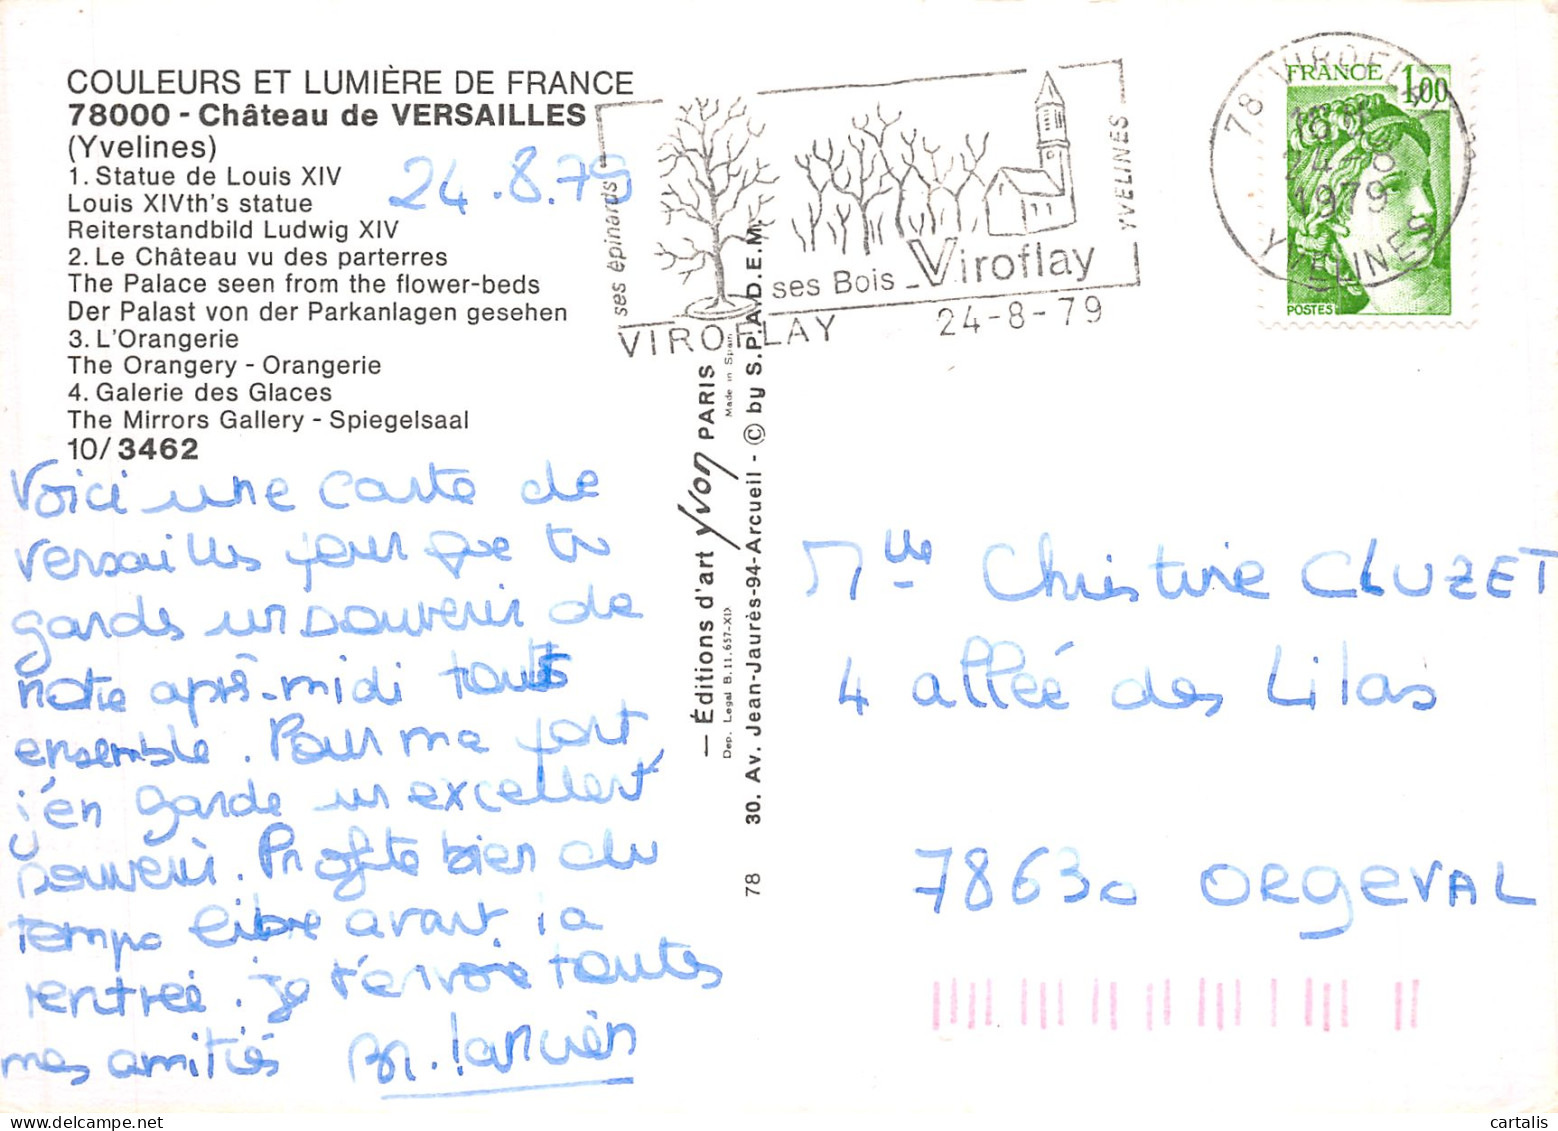 COULEURS ET LUMIÈRE DE FRANCE
78000 - Château de VERSAILLES
(Yvelines)
1. Statue de Louis XIV
Louis XIVth's statue
Reiterstandbild Ludwig XIV
2. Le Château vu des parterres
The Palace seen from the flower-beds
Der Palast von der Parkanlagen gesehen
3. L'Orangerie
The Orangery - Orangerie
4. Galerie des Glaces
The Mirrors Gallery - Spiegelsaal
10/3462
24.8.79
Voici une carte de
Versailles pour que tu
gardes un souvenir de
notre après-midi toutes
ensemble. Pour ma part
j'en garde un excellent
souvenir. Profite bien du
temps libre avant la
rentrée. je t'envoie toutes
mes amitiés
ses épinards
ses Bois Viroflay
YVELINES
VIROFLAY 24-8-79
— Éditions d'art yvon PARIS
Made in Spain
Dep. Legal B. 11.657-XI
78 30. Av. Jean-Jaurès-94-Arcueil - © by S.P.A.D.E.M.
78 VIROFLAY
24-8
1979
YVELINES
FRANCE 1,00
POSTES
Mlle Christine CLUZET
4 allée des Lilas
78630 ORgeVAL
cartalis